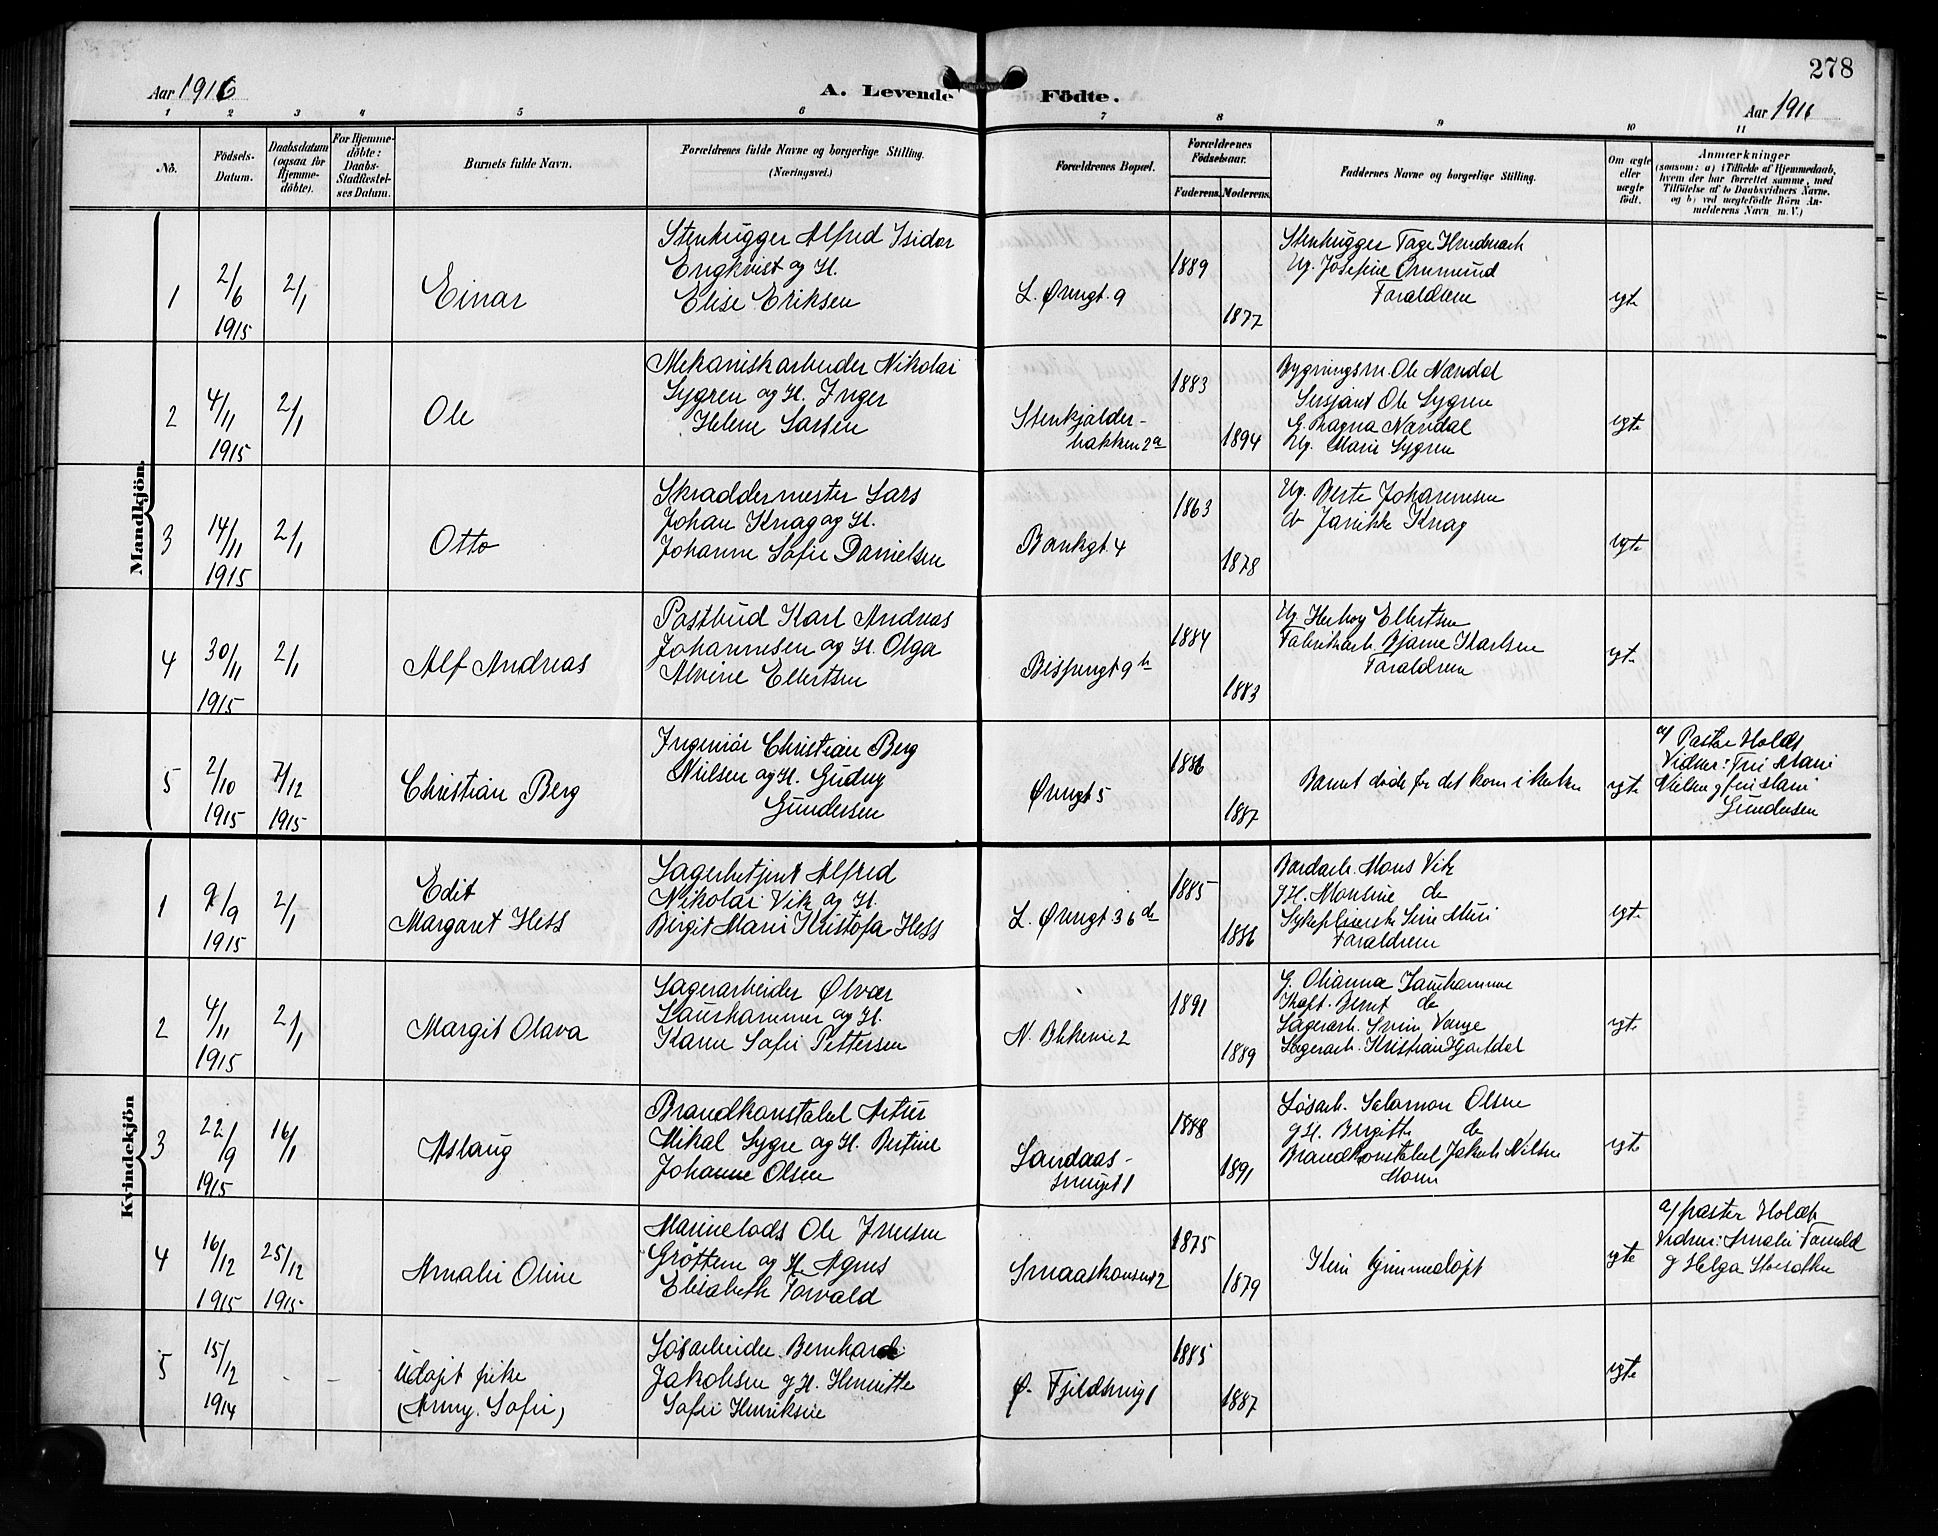 278
Aar 1916
A. Levende Födte.
Aar 1916
1 2 3 4 5 6 7 8 9 10 11
No.
Födsels-
Datum.
Daabsdatum
(ogsaa for
Hjemme-
döbte).
For Hjemme-
döbte:
Daabs-
Stadfæstel-
ses Datum.
Barnets fulde Navn.
Forældrenes fulde Navne og borgerlige Stilling.
(Næringsvei.)
Forældrenes Bopæl.
Forældrenes
Födselsaar.
Faderens. Moderens.
Faddernes Navne og borgerlige Stilling.
Om ægte
eller
uægte
født.
Anmærkninger
(saasom: a) i Tilfælde af Hjemmedaab,
hvem der har forrettet samme, med
Tilföielse af to Daabsvidners Navne,
og b) ved uægtefödte Börn An-
melderens Navn m. V.)
Mandkjön.
1
2/6
1915
2/1
Einar
Stenhugger Alfred Isidor
Engkvist og H.
Elise Eriksen
L. Øvregt. 9
1889
1877
Stenhugger Tage
Ug. Josefine
Forældrene
egte
2
4/11
1915
2/1
Ole
Mekaniskarbeider Nikolai
Sygren og H. Inger
Helene Larsen
Stenkjælder-
bakken 2a
1883
1894
Bygningsm. Ole Nævdal
Sersjant Ole Sygren
G. Magna Nævdal
Ug. Marie Sygren
egte
3
14/11
1915
2/1
Otto
Skræddermester Lars
Johan Knag og H.
Johanne Sofie Danielsen
Bankgt. 4
1863
1878
Ug. Berte Johannesen
do Jannikke Knag
egte
4
30/11
1915
2/1
Alf Andreas
Postbud Karl Andreas
Johannesen og H. Olga
Alvine Ellertsen
Bispengt 9b
1884
1883
Ug. Ellertsen
Fabrikarb. Bjarne Karlsen
Forældrene
egte
5
2/10
1915
7/12
1915
Christian Berg
Ingeniør Christian Berg
Nielsen og H. Gudny
Gundersen
Øvregt 5
1886
1887
Barnet døde før det kom i kirken
egte
a/ Pastor Holdt
Vidner: Fru Marie
Nielsen og fru Marie
Gundersen
Kvindekjön
1
9/9
1915
2/1
Edit
Margaret Hess
Lagerbetjent Alfred
Nikolai Vik og H.
Birgit Marie Kristofa Hess
L. Øvregt. 36 de
1885
1886
Mons Vik
og H. Monsine do
Sykepleierske
Forældrene
egte
2
4/11
1915
2/1
Margit Olava
Lagerarbeider Ølver
Laushammer og H.
Karen Sofie Pettersen
N. Blekevei 2
1891
1889
G. Olianna Laushammer
Kapt. Bernt do
Lagerarb. Svein
Lagerarb. Kristian Hjartdal
egte
3
22/9
1915
16/1
Aslaug
Brandkonstabel Artur
Mikal Sygre og H. Bertine
Johanne Olsen
Landaas-
smuget 1
1888
1891
Løsarb. Salomon Olsen
og H. Birgitte do
Brandkonstabel Jakob Nilsen
Moren
egte
4
16/12
1915
25/12
1915
Amalie Oline
Marinelods Ole Jensen
Grøttem og H. Agnes
Elisabeth Forvald
Smaaskansen 2
1875
1879
Kun hjemmedøpt
egte
a/ pastor Holdt
Vidner: Amalie Forvald
og Helga
5
15/12
1914
- -
Udøpt pike
(Anny. Sofie)
Løsarbeider Bernhard
Jakobsen og H. Henriette
Sofie Henriksen
Ø. Fjeldsmug 1
1885
1887
egte